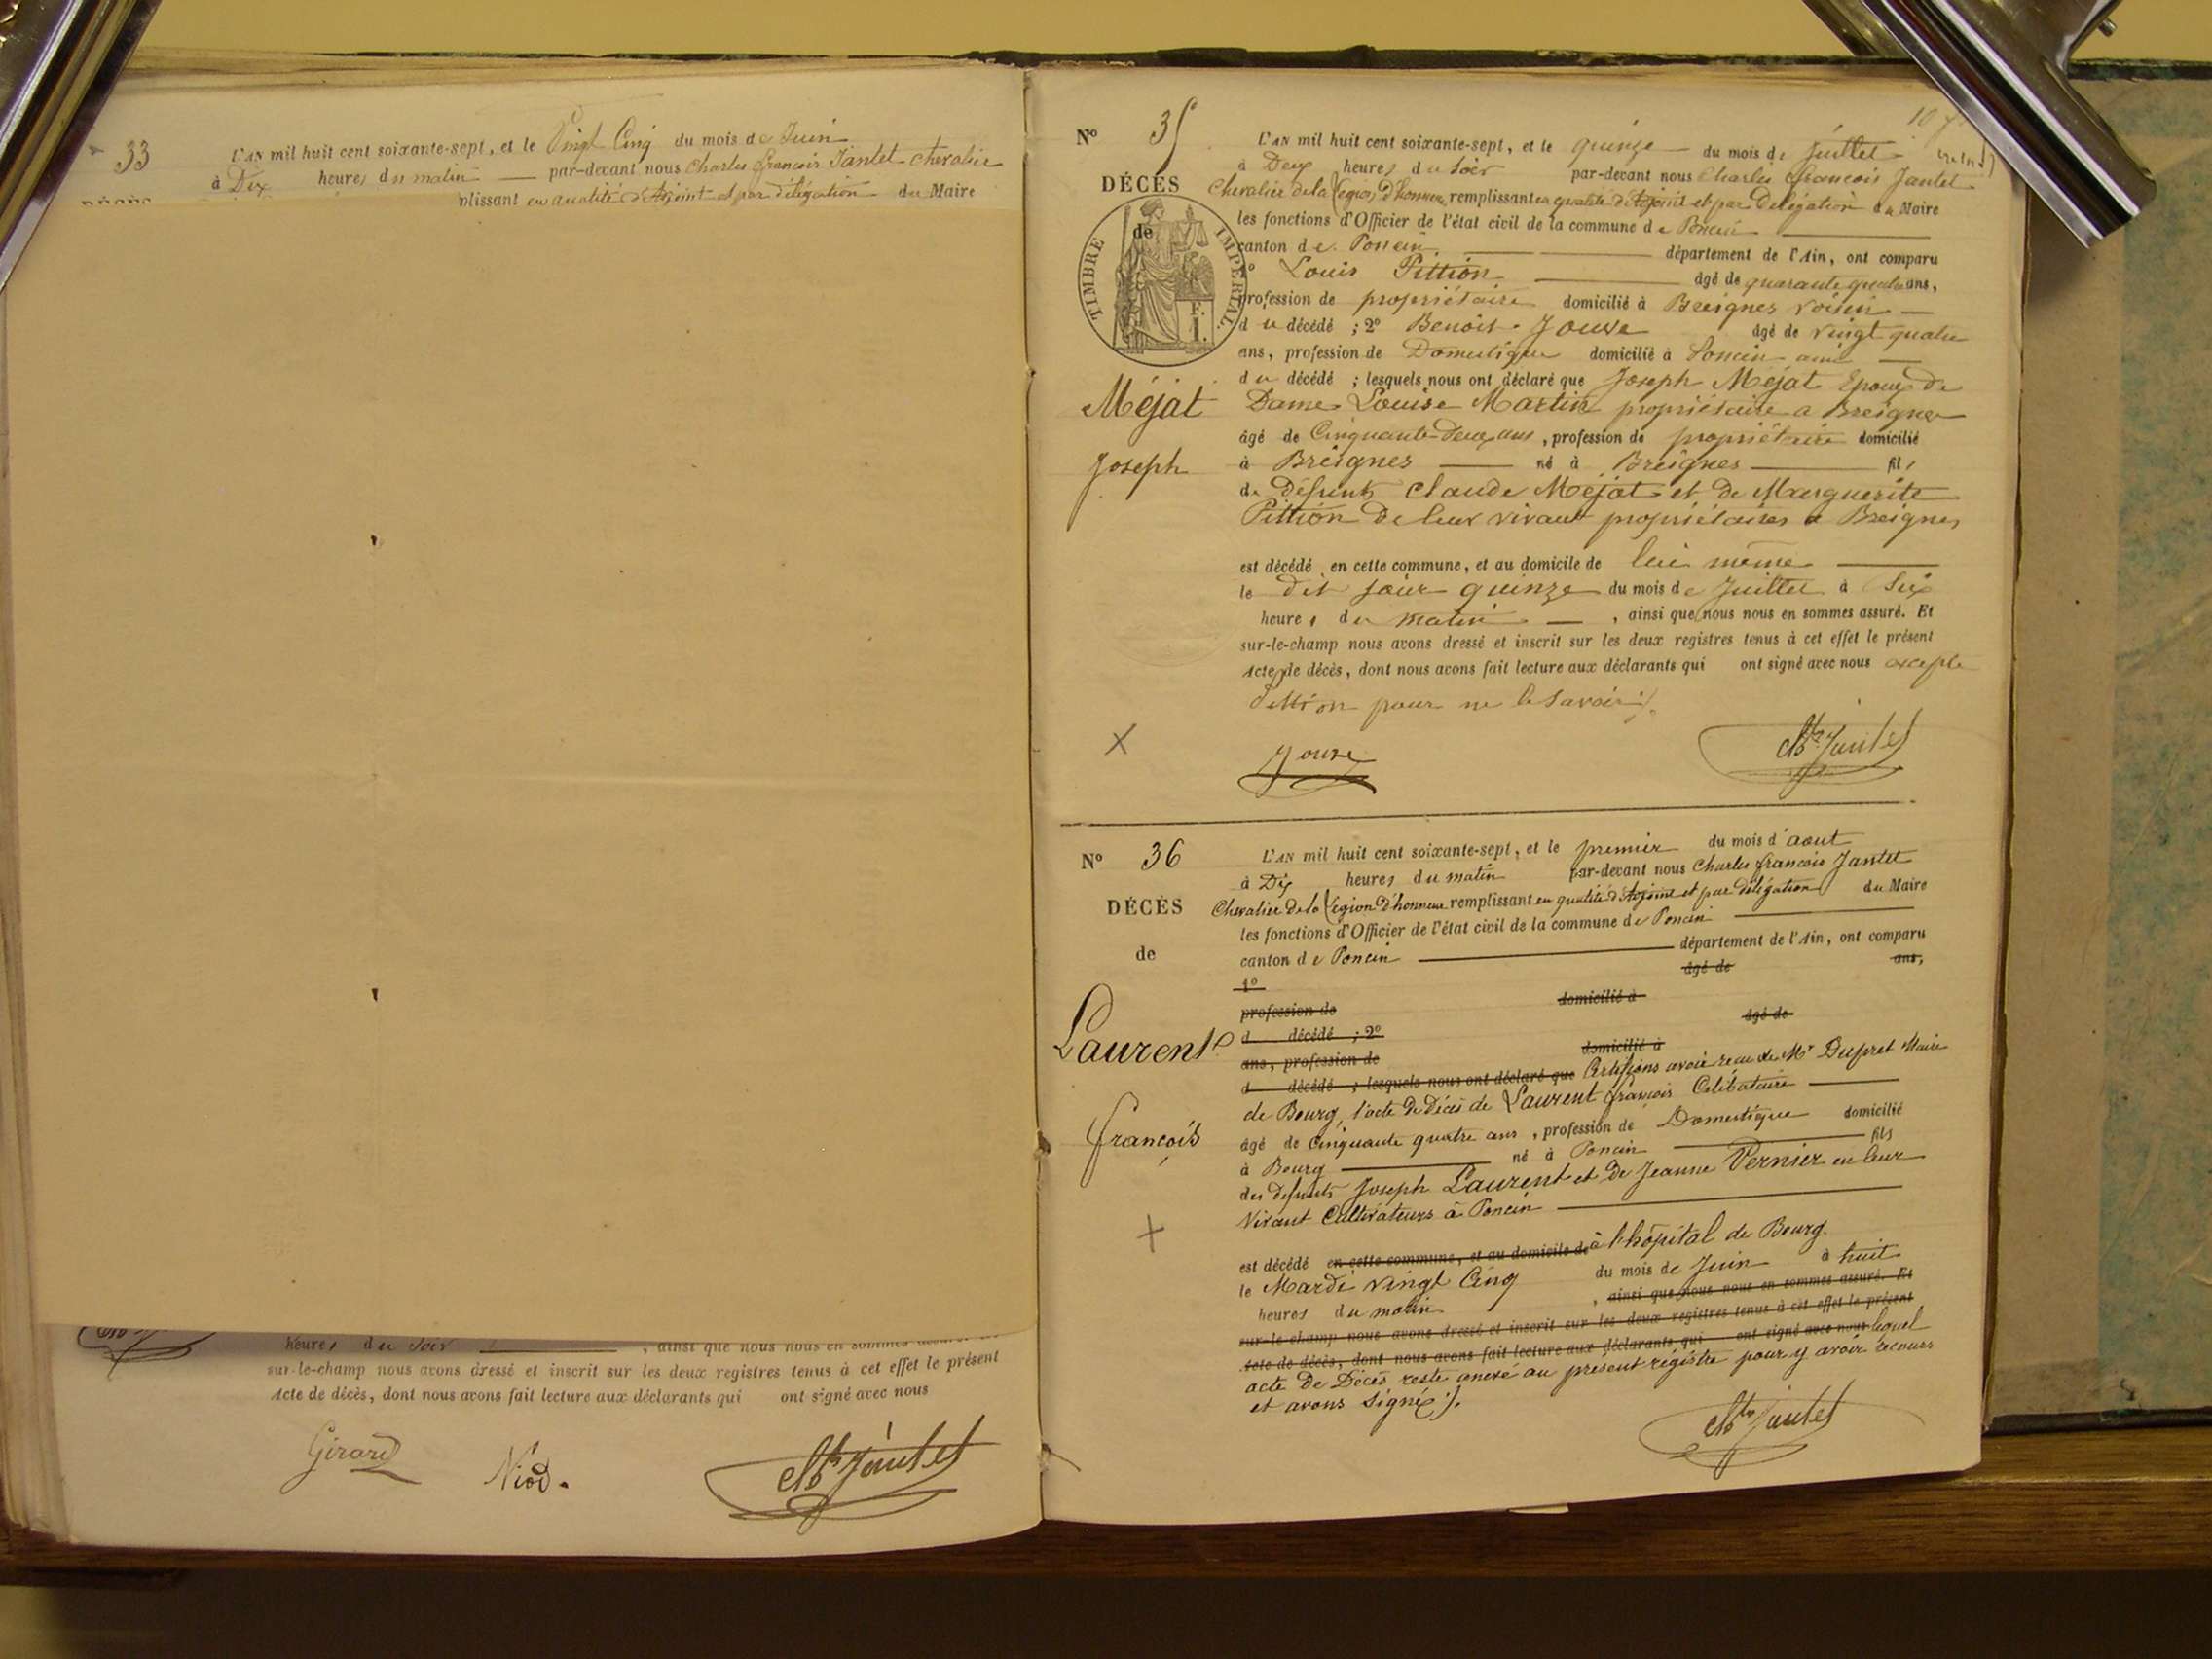 33
L'AN mil huit cent soixante-sept, et le Vingt Cinq du mois de Juin
à Dix heures du matin — par-devant nous Charles françois Jantet chevalier
plissant en qualité d'Adjoint et par délégation du Maire
heures du soir , ainsi que nous nous en sommes
sur-le-champ nous avons dressé et inscrit sur les deux registres tenus à cet effet le présent
Acte de décès, dont nous avons fait lecture aux déclarants qui ont signé avec nous
Girard Niod. Ch Jantet
N° 35
DÉCÈS
de
TIMBRE IMPÉRIAL
Méjat
Joseph
L'AN mil huit cent soixante-sept, et le quinze du mois de juillet
à Deux heures du Soir par-devant nous Charles françois Jantet
Chevalier de la Légion D'honneur remplissant en qualité d'Adjoint et par Délégation du Maire
les fonctions d'Officier de l'état civil de la commune de Poncin
canton de Poncin département de l'Ain, ont comparu
1° Louis Pittion âgé de quarante quatre ans,
profession de propriétaire domicilié à Breignes voisin —
du décédé ; 2° Benoit Jouve âgé de vingt quatre
ans, profession de Domestique domicilié à Poncin ami —
du décédé ; lesquels nous ont déclaré que Joseph Méjat Epoux de
Dame Louise Martin propriétaire a Breignes
âgé de Cinquante-Deux ans , profession de propriétaire domicilié
à Breignes né à Breignes fils
de Défunts Claude Mejat et de Marguerite
Pittion De leur vivant propriétaires a Breignes
est décédé en cette commune, et au domicile de lui même
le dit jour quinze du mois de Juillet à Six
heures du matin — , ainsi que nous nous en sommes assuré. Et
sur-le-champ nous avons dressé et inscrit sur les deux registres tenus à cet effet le présent
Acte de décès, dont nous avons fait lecture aux déclarants qui ont signé avec nous excepte
Pittion pour ne le savoir ./.
Jouve Ch Jantet
N° 36
DÉCÈS
de
Laurent
françois
L'AN mil huit cent soixante-sept, et le premier du mois d'aout
à Dix heures du matin par-devant nous Charles françois Jantet
Chevalier de la Légion D'honneur remplissant en qualité d'Adjoint et par délégation du Maire
les fonctions d'Officier de l'état civil de la commune de Poncin
canton de Poncin département de l'Ain, ont comparu
1° âgé de ans,
profession de domicilié à
d décédé ; 2° âgé de
ans, profession de domicilié à
d décédé ; lesquels nous ont déclaré que Certifions avoir reçu de Mr Dupret Maire
de Bourg, l'acte de Décès de Laurent françois Célibataire
âgé de Cinquante quatre ans , profession de Domestique domicilié
à Bourg né à Poncin fils
des defunts Joseph Laurent et de Jeanne Vernier en leur
Vivant Cultivateurs à Poncin
est décédé en cette commune, et au domicile de à l'hôpital de Bourg
le Mardi vingt Cinq du mois de Juin à huit
heures du matin , ainsi que nous nous en sommes assuré. Et
sur-le-champ nous avons dressé et inscrit sur les deux registres tenus à cet effet le présent
Acte de décès, dont nous avons fait lecture aux déclarants qui ont signé avec nous lequel
acte de Décès reste anexé au présent régistre pour y avoir recours
et avons Signé ./.
Ch Jantet